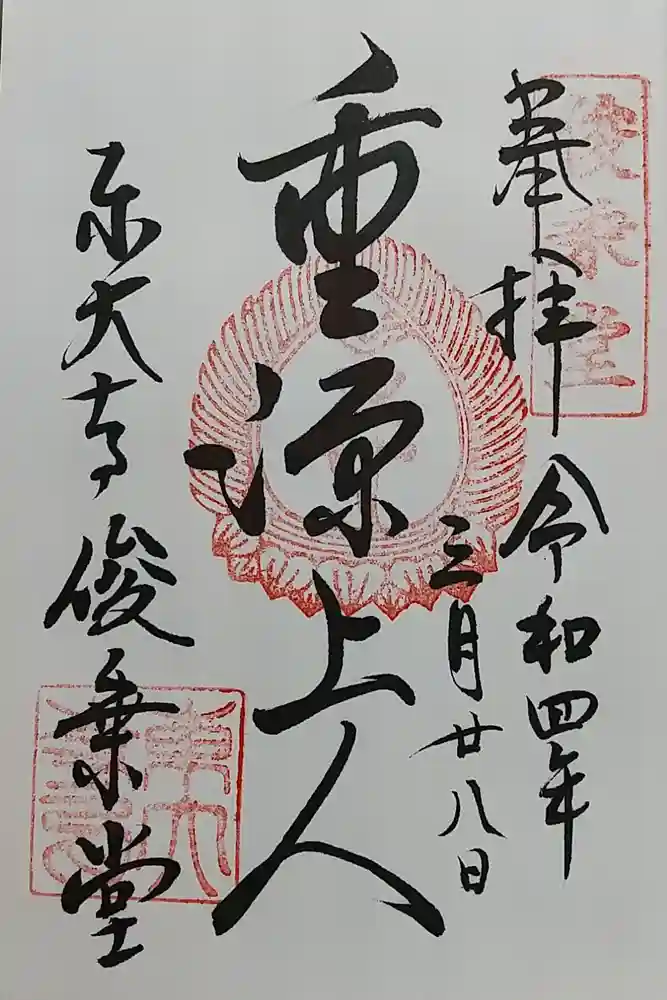 奉拝
俊乗堂
令和四年
三月廿八日
重源上人
東大寺俊乗堂